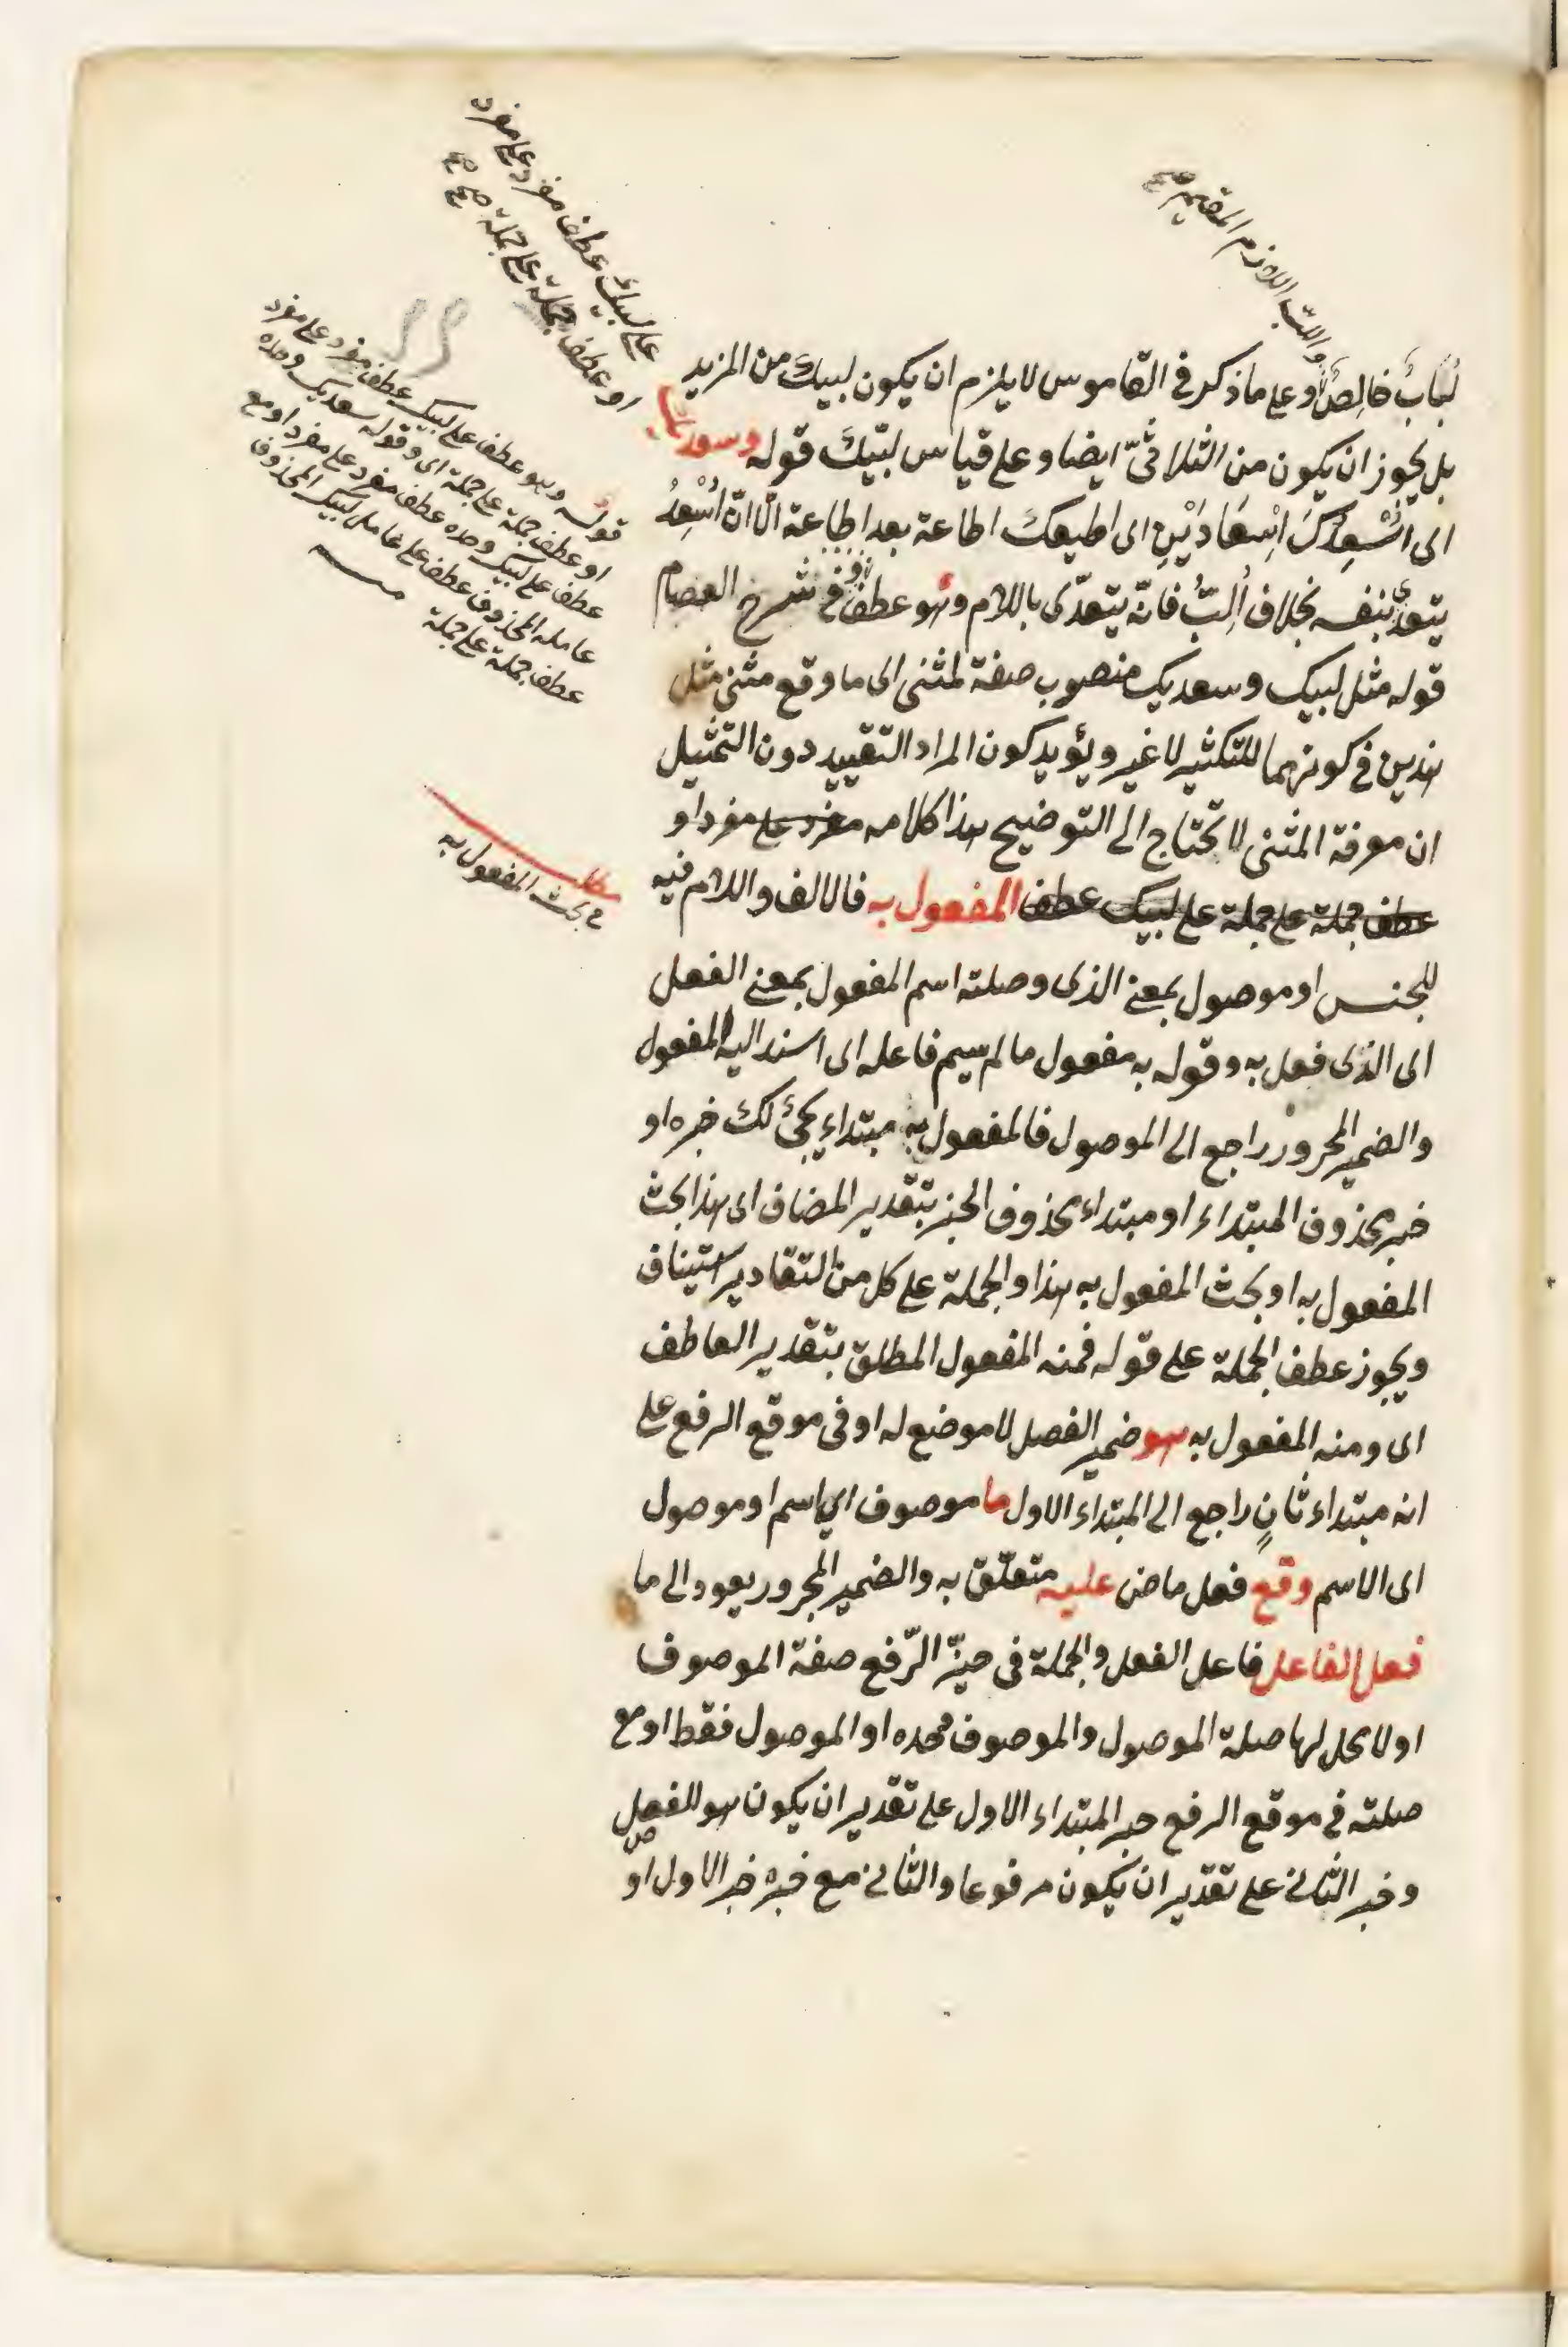 واللب اللازم المقيم صح
على لبيك عطف مفرد على مفرد
او عطف جملة على جملة صح صح
لُبَابٌ خَالِصٌ وعلى ما ذكر فى القاموس لا يلزم ان يكون لبيك من المزيد
بل يجوز ان يكون من الثلاثىّ ايضا وعلى قياس لبّيك قوله وسعديك
اى اُسْعِدُكَ اِسْعَادَيْنِ اى اطيعك اطاعة بعد اطاعة الّا انّ اُسْعِدُ
يتعدى بنفسه بخلاف اُلِبُّ فانّه يتعدّى باللام وهو عطف فى شرح العصام
قوله مثل لبيك وسعديك منصوب صفة لمثنى اى ما وقع مثنى مثل
هذين فى كونهما للتكثير لا غير ويؤيد كون المراد التقييد دون التمثيل
ان معرفة المثنى لا تحتاج الى التوضيح هذا كلامه مفرد على مفرد او
عطف جملة على جملة على لبيك عطف المفعول به فالالف واللام فيه
للجنس او موصول بمعنى الذى وصلته اسم المفعول بمعنى الفعل
اى الذى فعل به وقوله به مفعول ما لم يسم فاعله اى اسند اليه المفعول
والضمير المجرور راجع الى الموصول فالمفعول به مبتداء يجئ لك خبره او
خبر محذوف المبتداء او مبتداء محذوف الخبر بتقدير المضاف اى هذا بحث
المفعول به او بحث المفعول به هذا والجملة على كل من التقادير استيناف
ويجوز عطف الجملة على قوله فمنه المفعول المطلق بتقدير العاطف
اى ومنه المفعول به هو ضمير الفصل لا موضع له او فى موقع الرفع على
انه مبتداء ثانٍ راجع الى المبتداء الاول ما موصوف اى اسم او موصول
اى الاسم وقع فعل ماض عليه متعلّق به والضمير المجرور يعود الى ما
فعل الفاعل فاعل الفعل والجملة فى حيّز الرّفع صفة الموصوف
او لا محل لها صلة الموصول والموصوف وحده او الموصول فقط او مع
صلته فى موقع الرفع خبر المبتداء الاول على تقدير ان يكون هو للفصل
وخبر الثانى على تقدير ان يكون مرفوعا والثانى مع خبره خبر الاول او
قوله وهو عطف على لبيك عطف مفرد على مفرد
او عطف جملة على جملة اى وقوله سعديك وحده
عطف على لبيك وحده عطف مفرد على مفرد او مع
عامله المحذوف عطف على عامل لبيك المحذوف
عطف جملة على جملة
مطلب
فى بحث المفعول به